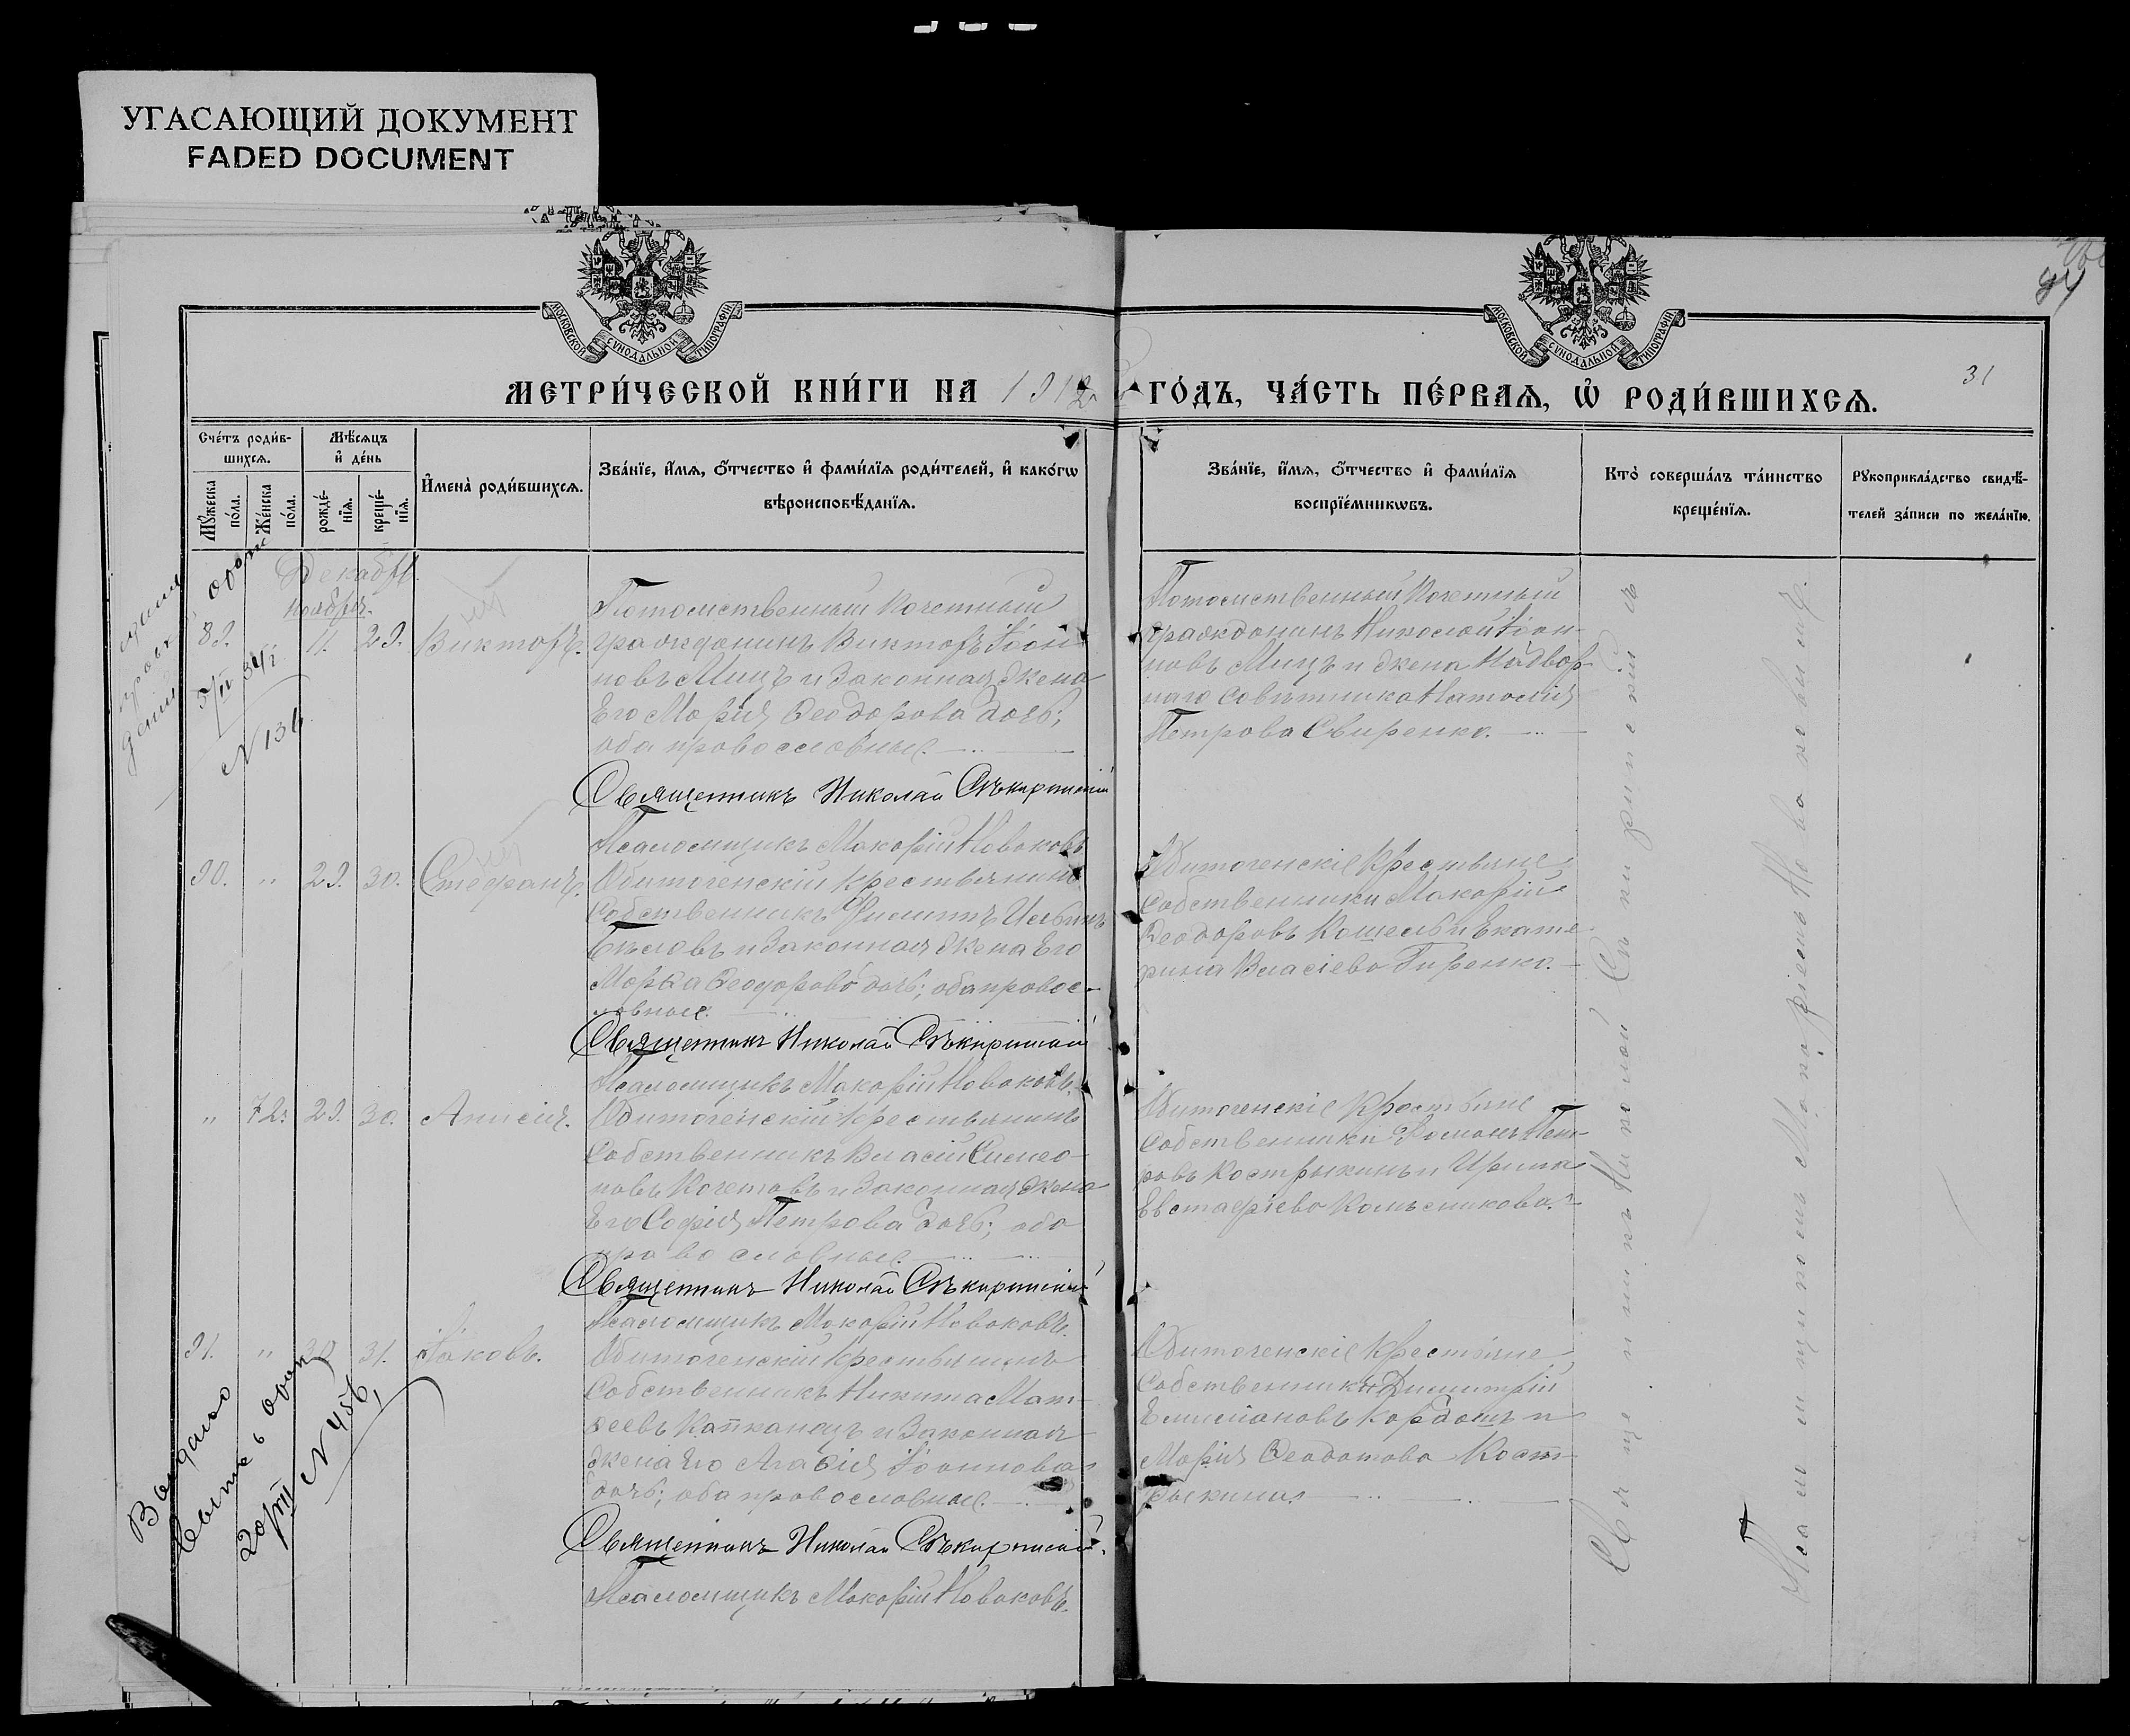 УГАСАЮЩИЙ ДОКУМЕНТ
FADED DOCUMENT
МОСКОВСКОЙ СУНОДАЛЬНОЙ ТИПОГРАФІИ
МОСКОВСКОЙ СУНОДАЛЬНОЙ ТИПОГРАФІИ
84
31
МЕТРИ́ЧЕСКОЙ КНИ́ГИ НА 1912 ГО́ДЪ, ЧА́СТЬ ПЕ́РВАѦ, Ѡ҆ РОДИ́ВШИХСѦ.
Сче́тъ роди́в-
шихсѧ.
Мꙋ́жеска по́ла.
Же́нска по́ла.
Мѣ́сѧцъ
и҆ де́нь
рожде́-
нїѧ.
креще́-
нїѧ.
И҆мена̀ роди́вшихсѧ.
Зва́нїе, и҆́мѧ, ѻ҆́тчество и҆ фами́лїѧ роди́телей, и҆ како́гѡ
вѣроисповѣ́данїѧ.
Зва́нїе, и҆́мѧ, ѻ҆́тчество и҆ фами́лїѧ
воспрїе́мникѡвъ.
Кто̀ соверша́лъ та́инство
креще́нїѧ.
Рꙋкоприкла́дство свидѣ́-
телей за́писи по жела́нїю.
Декабрь.
Ноября.
89. 11. 29. Викторъ.
Потомственный Почетный
гражданинъ Викторъ Іоан-
новъ Мицъ и законная жена
Его Марія Ѳеодорова дочь;
оба православные.
Священникъ Николай
Псаломщикъ Макарій Новаковъ
Потомственный Почетный
гражданинъ Николай Іоан-
новъ Мицъ и жена Надвор-
наго Совѣтника Наталія
Петрова Свиренко.
N 136
90. " 29. 30. Стефанъ.
Обиточенскій крестьянинъ
Собственникъ Филиппъ
Бѣловъ и законная жена Его
Марѳа Ѳеодорова дочь; оба правос-
лавные.
Священникъ Николай
Псаломщикъ Макарій Новаковъ.
Обиточенскіе крестьяне
Собственники Макарій
Ѳеодоровъ Кошель и Екате-
рина Власіева Гиренко.
" 72. 29. 30. Анисія.
Обиточенскій крестьянинъ
Собственникъ Власій Симео-
новъ Кочетовъ и законная жена
Его Софія Петрова дочь; оба
православные.
Священникъ Николай
Псаломщикъ Макарій Новаковъ.
Обиточенскіе крестьяне
Собственники Романъ Пет-
ровъ Кострыкинъ и Ирина
Евстафіева Колѣсникова.
91. " 30. 31. Іаковъ.
Обиточенскій крестьянинъ
Собственникъ Никита Мат-
ѳеевъ Капканецъ и законная
жена Его Агаѳія Іоаннова
дочь; оба православные.
Священникъ Николай
Псаломщикъ Макарій Новаковъ.
Обиточенскіе крестьяне
Собственники Димитрій
Емиліановъ Кардашъ и
Марія Ѳеодотова Кост-
рыкина.
Выдано
N 456
Священникъ Николай
Псаломщикъ Макарій Новаковъ.